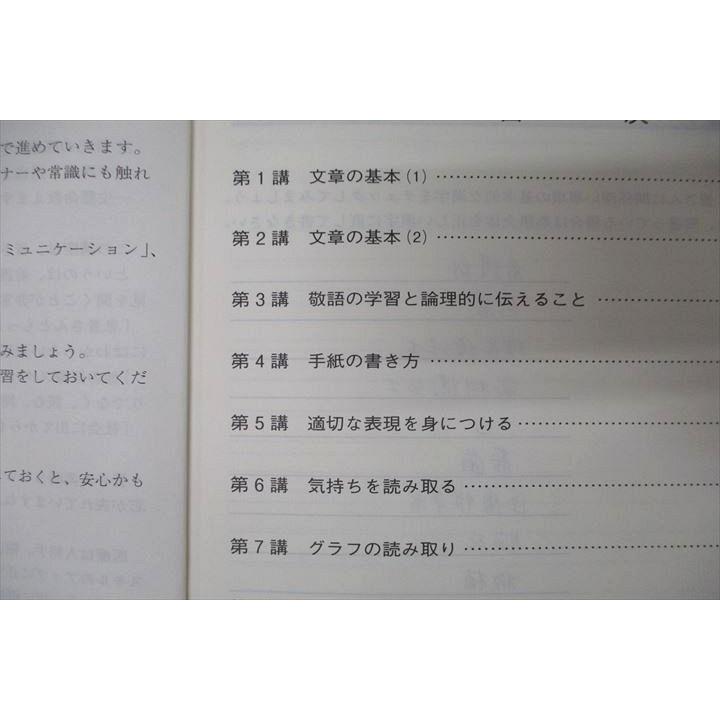 で進めていきます。
ナーや常識にも触れ
ミュニケーション」、
みましょう。
習をしておいてくだ
ておくと、安心かも
第1講 文章の基本(1)
第2講 文章の基本(2)
第3講 敬語の学習と論理的に伝えること
第4講 手紙の書き方
第5講 適切な表現を身につける
第6講 気持ちを読み取る
第7講 グラフの読み取り